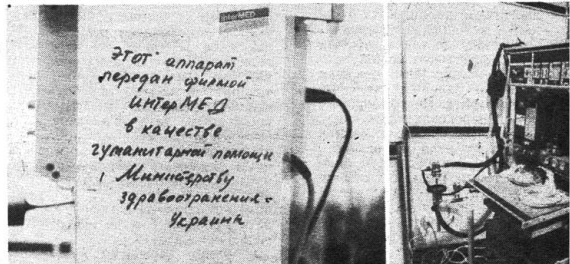 InterMED
Этот аппарат
передан фирмой
ИнтерМЕД
в качестве
гуманитарной помощи
Министерству
здравоохранения
Украины